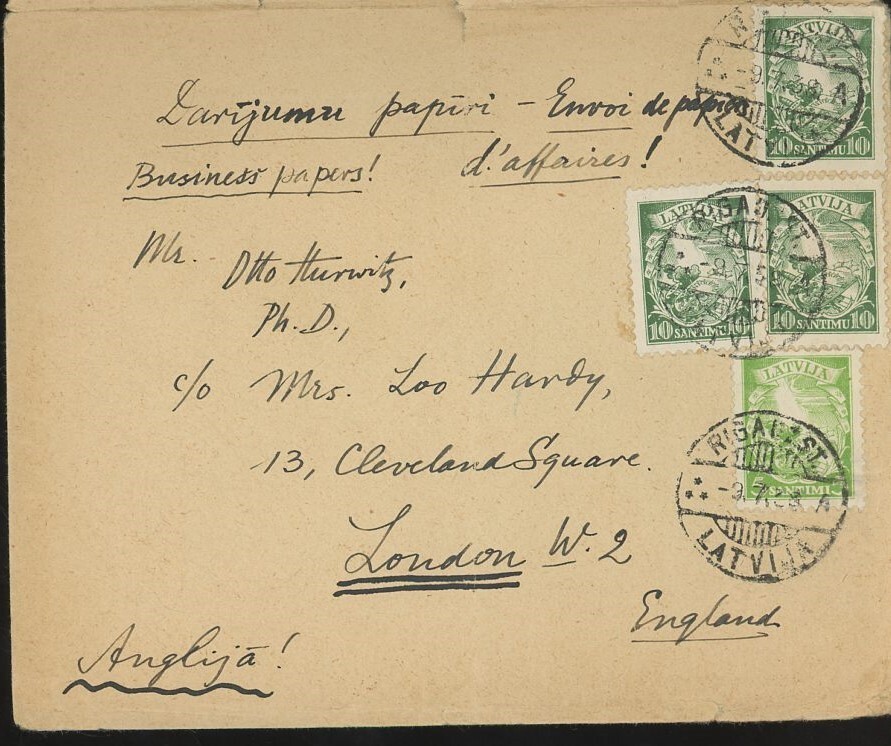 Darījumu papīri - Envoi de papiers
Business papers! d'affaires!
Mr. Otto Hurwitz,
Ph. D.,
c/o Mrs. Loo Hardy,
13, Cleveland Square.
London W. 2
England
Anglijā!
LATVIJA
10 SANTIMU 10
LATVIJA
10 SANTIMU
LATVIJA
10 SANTIMU 10
LATVIJA
5 SANTIMI
-9.7.38 A
LAT
RIGA
RIGA
ST.
LATVIJA